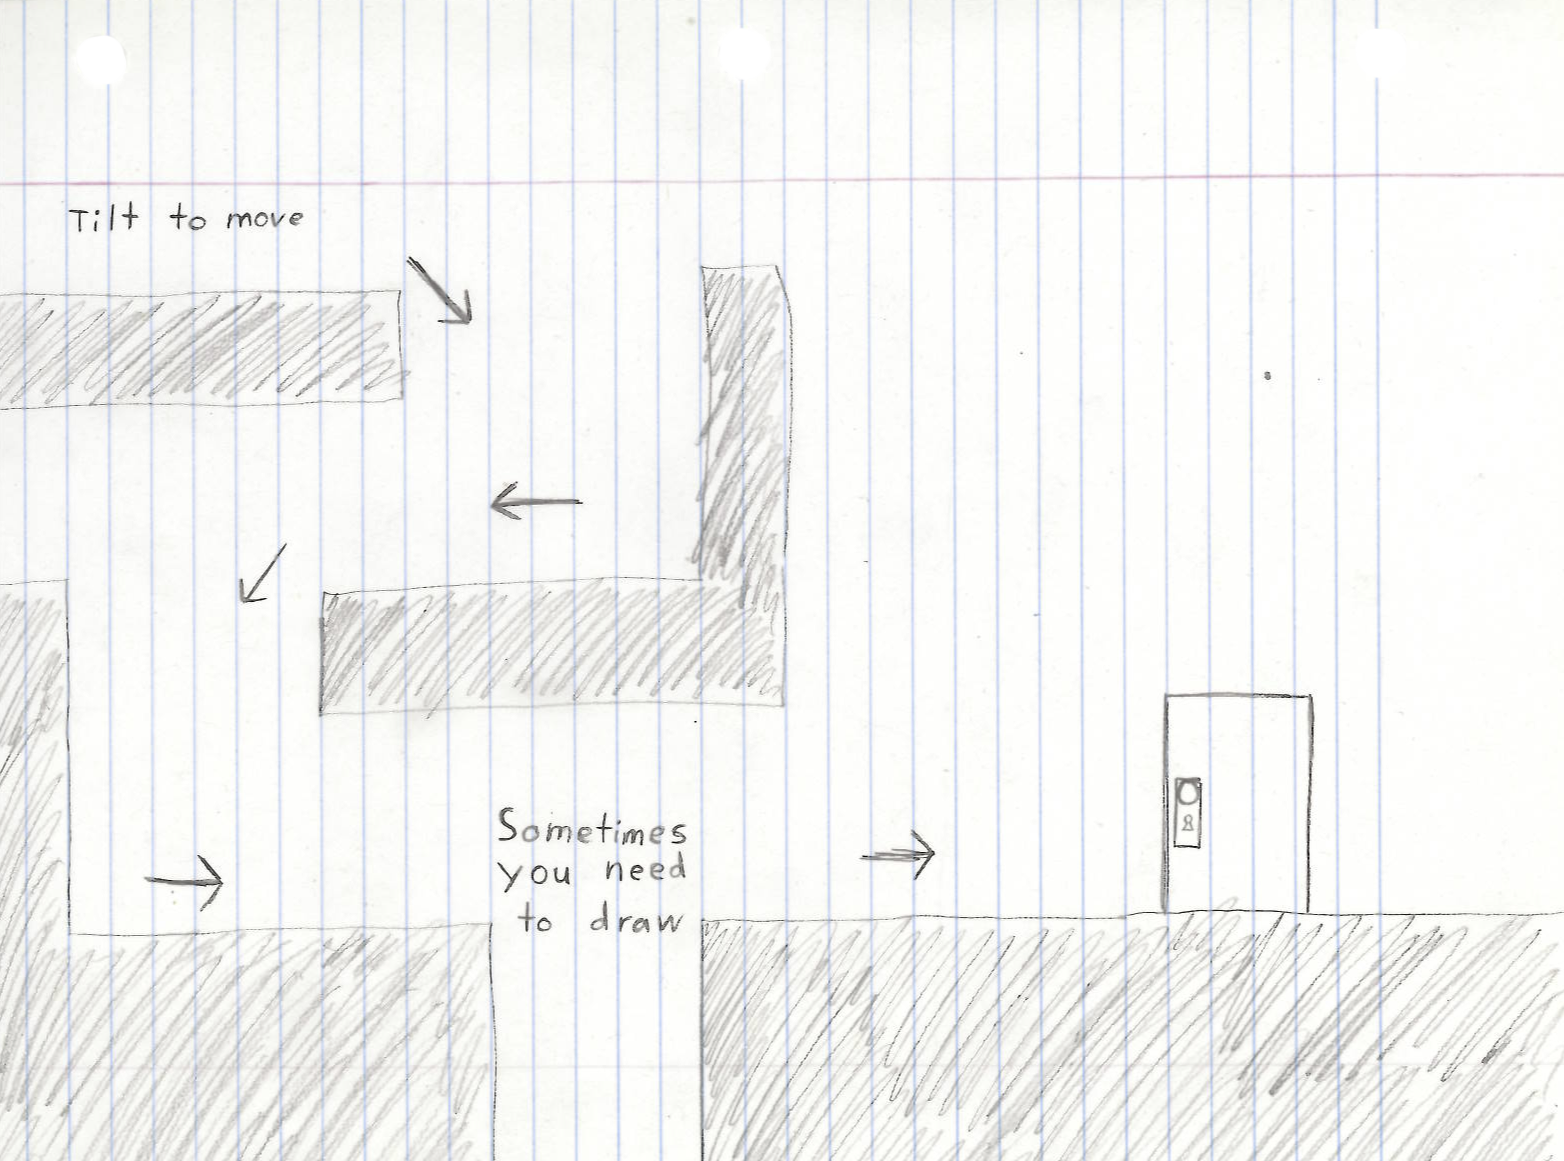 Tilt to move
Sometimes
you need
to draw